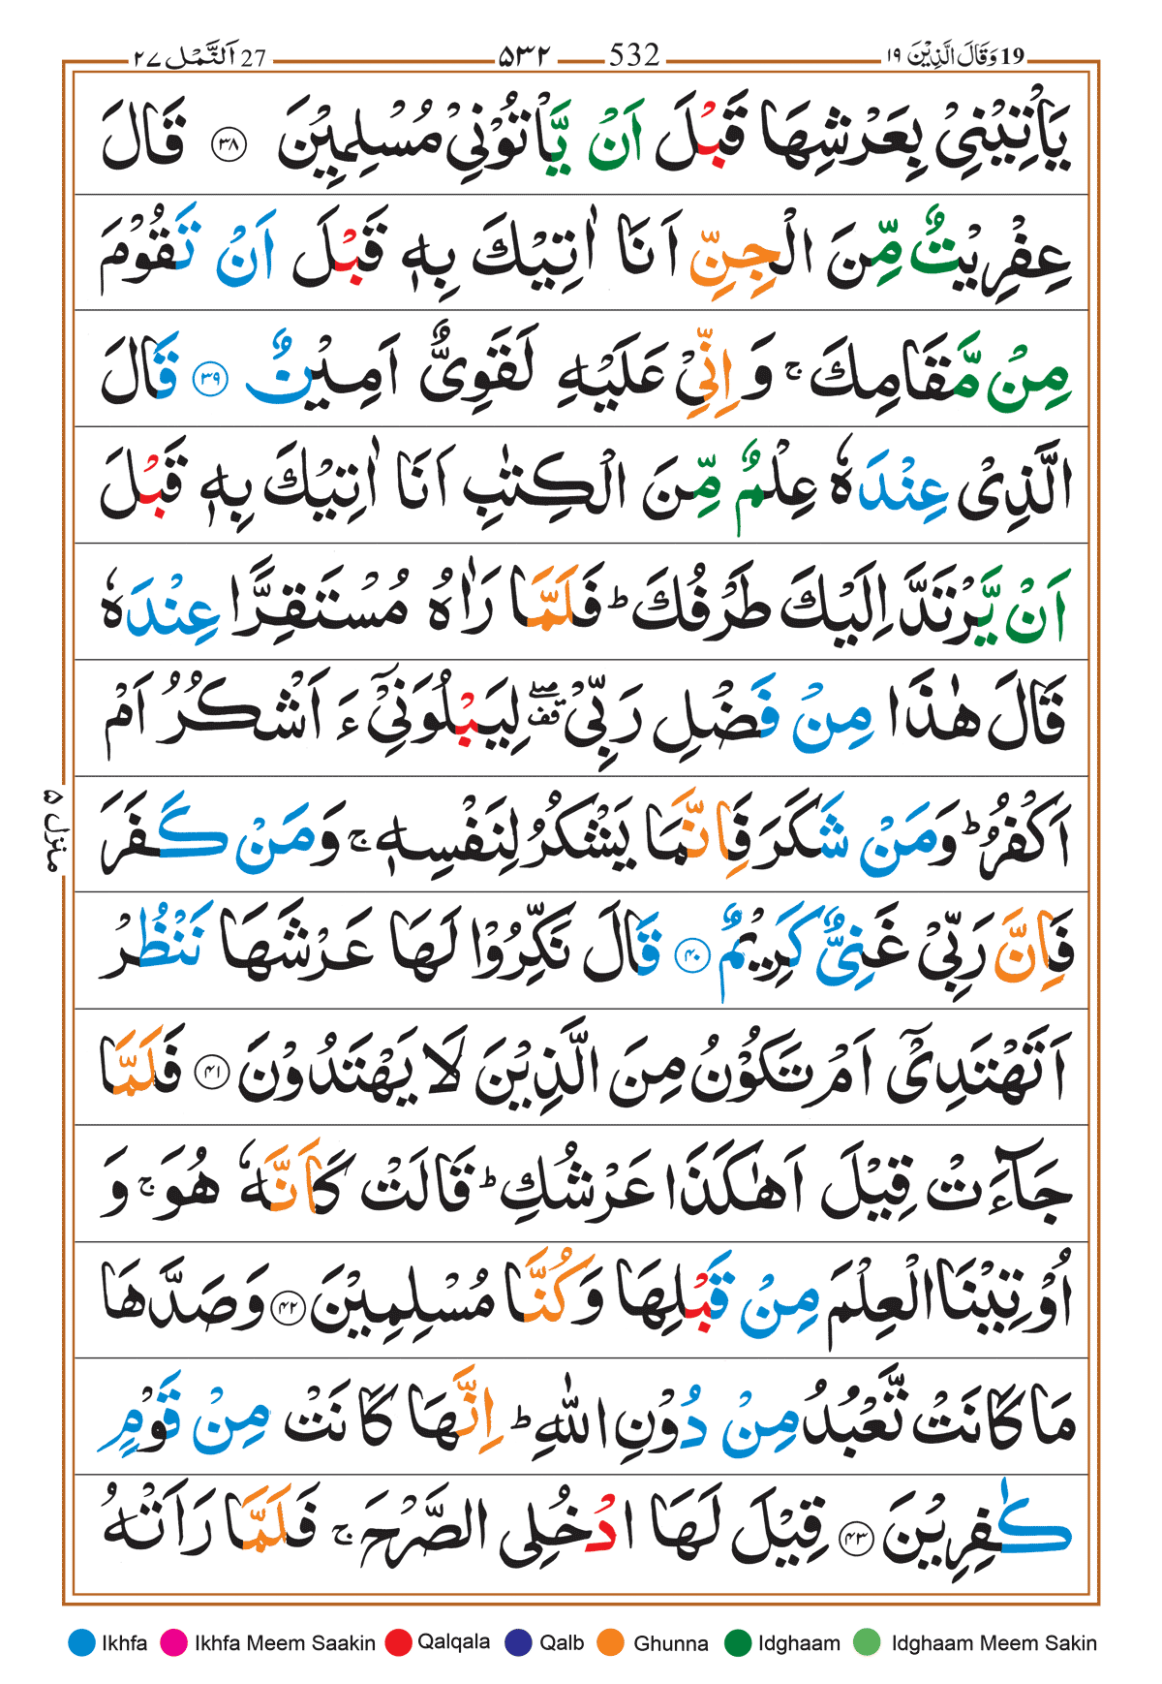 19 وَقَالَ الَّذِيْنَ ١٩ 532 ۵۳۲ 27 اَلنَّمْل ۲۷
يَاْتِيْنِيْ بِعَرْشِهَا قَبْلَ اَنْ يَّاْتُوْنِيْ مُسْلِمِيْنَ ۳۸ قَالَ
عِفْرِيْتٌ مِّنَ الْجِنِّ اَنَا اٰتِيْكَ بِهٖ قَبْلَ اَنْ تَقُوْمَ
مِنْ مَّقَامِكَ ۚ وَ اِنِّيْ عَلَيْهِ لَقَوِيٌّ اَمِيْنٌ ۳۹ قَالَ
الَّذِيْ عِنْدَهٗ عِلْمٌ مِّنَ الْكِتٰبِ اَنَا اٰتِيْكَ بِهٖ قَبْلَ
اَنْ يَّرْتَدَّ اِلَيْكَ طَرْفُكَ ؕ فَلَمَّا رَاٰهُ مُسْتَقِرًّا عِنْدَهٗ
قَالَ هٰذَا مِنْ فَضْلِ رَبِّيْ ۖقف لِيَبْلُوَنِيْٓ ءَ اَشْكُرُ اَمْ
اَكْفُرُ ؕ وَمَنْ شَكَرَ فَاِنَّمَا يَشْكُرُ لِنَفْسِهٖ ۚ وَمَنْ كَفَرَ
فَاِنَّ رَبِّيْ غَنِيٌّ كَرِيْمٌ ۴۰ قَالَ نَكِّرُوْا لَهَا عَرْشَهَا نَنْظُرْ
اَتَهْتَدِيْٓ اَمْ تَكُوْنُ مِنَ الَّذِيْنَ لَا يَهْتَدُوْنَ ۴۱ فَلَمَّا
جَآءَتْ قِيْلَ اَهٰكَذَا عَرْشُكِ ؕ قَالَتْ كَاَنَّهٗ هُوَ ۚ وَ
اُوْتِيْنَا الْعِلْمَ مِنْ قَبْلِهَا وَكُنَّا مُسْلِمِيْنَ ۴۲ وَصَدَّهَا
مَا كَانَتْ تَّعْبُدُ مِنْ دُوْنِ اللّٰهِ ؕ اِنَّهَا كَانَتْ مِنْ قَوْمٍ
كٰفِرِيْنَ ۴۳ قِيْلَ لَهَا ادْخُلِي الصَّرْحَ ۚ فَلَمَّا رَاَتْهُ
منزل ۵
Ikhfa Ikhfa Meem Saakin Qalqala Qalb Ghunna Idghaam Idghaam Meem Sakin